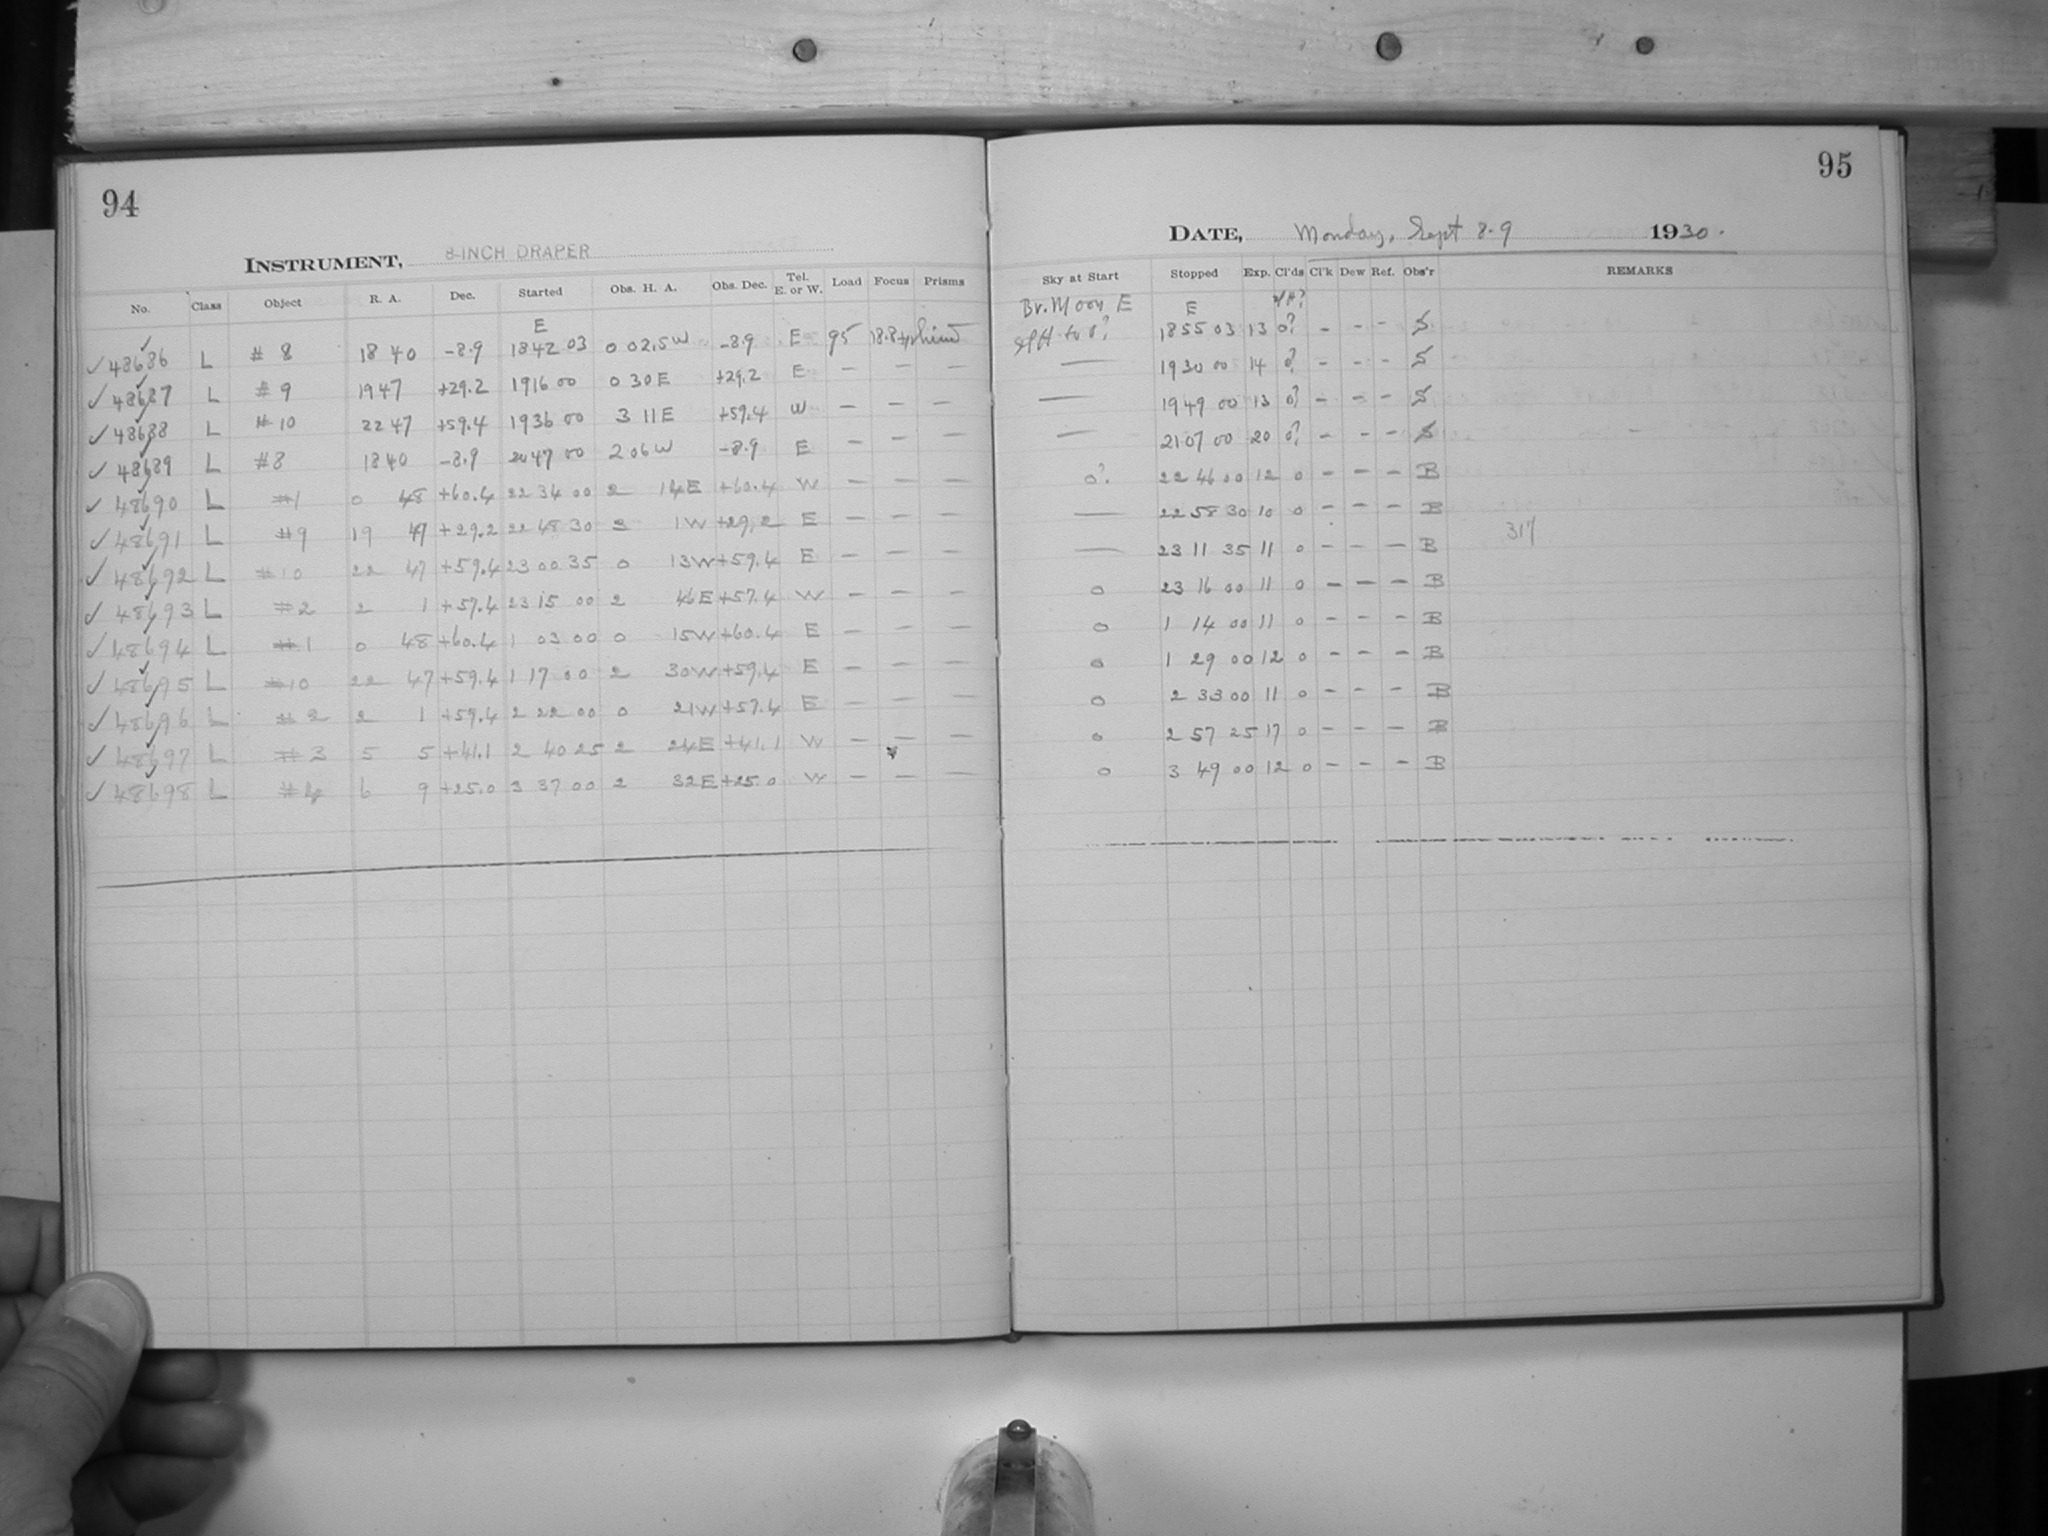 94
INSTRUMENT, 8-INCH DRAPER
No. Class Object R. A. Dec. Started Obs. H. A. Obs. Dec. Tel. E. or W. Load Focus Prisms
E
✓ 48686 L # 8 18 40 -8.9 1842 03 0 02.5 W -8.9 E 95 18.8
✓ 48687 L # 9 1947 +29.2 1916 00 0 30 E +29.2 E — — —
✓ 48688 L # 10 22 47 +59.4 1936 00 3 11 E +59.4 W — — —
✓ 48689 L #8 18 40 -8.9 2047 00 2 06 W -8.9 E — — —
✓ 48690 L #1 0 48 +60.4 22 34 00 2 14 E +60.4 W — — —
✓ 48691 L #9 19 47 +29.2 22 48 30 3 1 W +29.2 E — — —
✓ 48692 L #10 22 47 +59.4 23 00 35 0 13 W +59.4 E — — —
✓ 48693 L #2 2 1 +57.4 23 15 00 2 46 E +57.4 W — — —
✓ 48694 L #1 0 48 +60.4 1 03 00 0 15 W +60.4 E — — —
✓ 48695 L #10 22 47 +59.4 1 17 00 2 30 W +59.4 E — — —
✓ 48696 L #2 2 1 +59.4 2 22 00 0 21 W +57.4 E — — —
✓ 48697 L #3 5 5 +41.1 2 40 25 2 24 E +41.1 W — — —
✓ 48698 L #4 6 9 +25.0 3 37 00 2 32 E +25.0 W — — —
95
DATE, Monday, Sept 8-9 1930.
Sky at Start Stopped Exp. Cl'ds Cl'k Dew Ref. Obs'r REMARKS
Br. Moon E E
to 0? 1855 03 13 0? - - - S
— 1930 00 14 0? - - - S
— 1949 00 13 0? - - - S
— 2107 00 20 0? - - - S
0? 22 46 00 12 0 - - - B
— 22 58 30 10 0 - - - B
— 23 11 35 11 0 - - - B 317
0 23 16 00 11 0 - - - B
0 1 14 00 11 0 - - - B
0 1 29 00 12 0 - - - B
0 2 33 00 11 0 - - - B
0 2 57 25 17 0 - - - B
0 3 49 00 12 0 - - - B